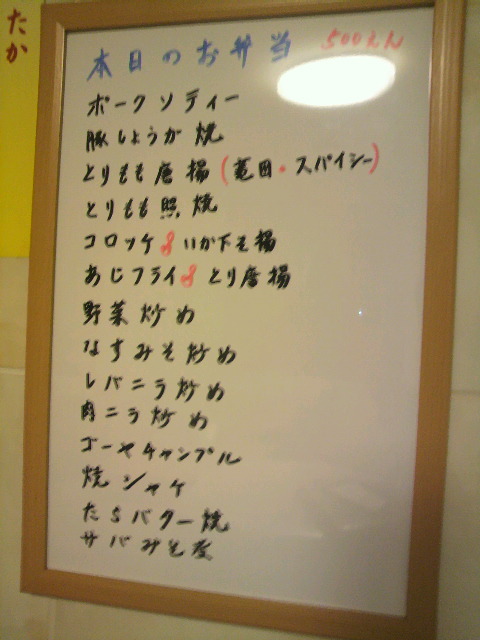 たか
本日のお弁当 500えん
ポークソティー
豚しょうが焼
とりもも唐揚(竜田・スパイシー)
とりもも照焼
コロッケ&いか下そ揚
あじフライ&とり唐揚
野菜炒め
なすみそ炒め
レバニラ炒め
肉ニラ炒め
ゴーヤチャンプル
焼シャケ
たらバター焼
サバみそ煮